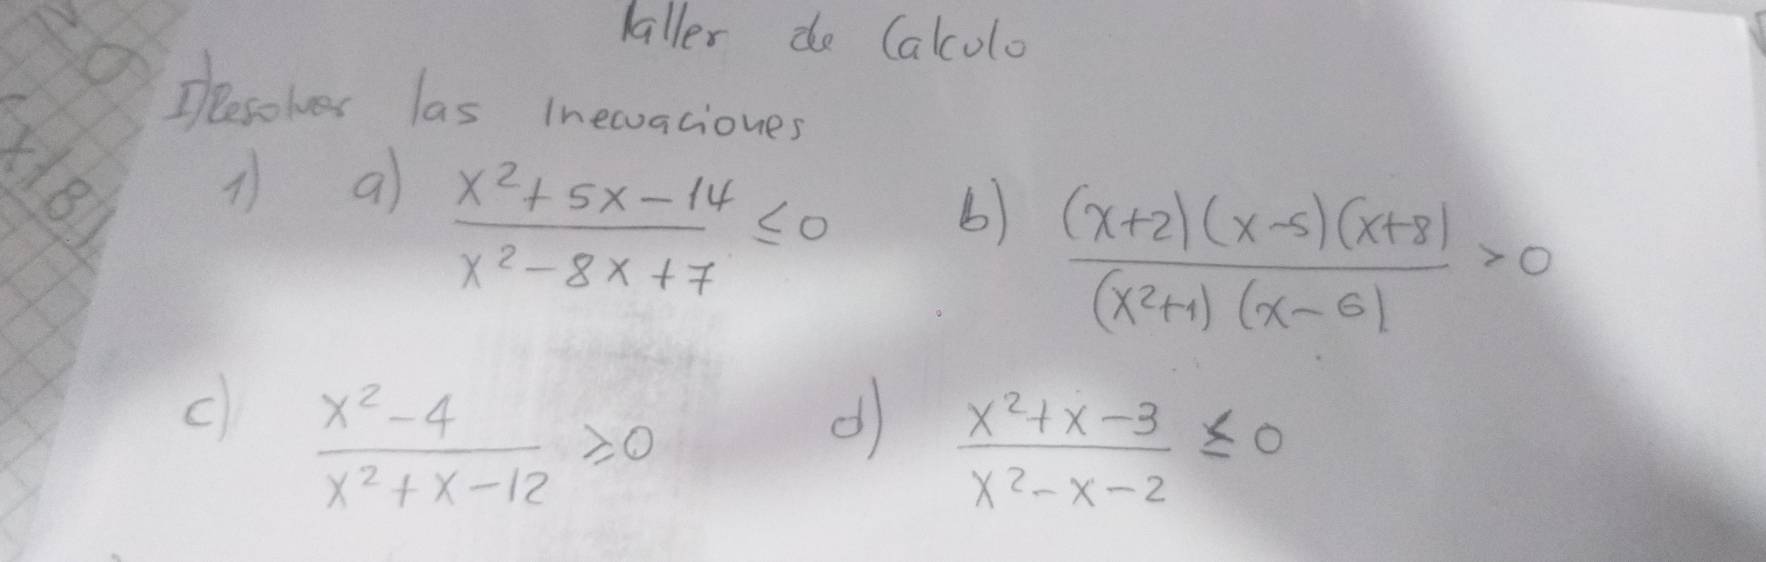 Taller de Calculo
I) Resolver las inecuaciones
1) a) (x²+5x-14)/(x²-8x+7) ≤0 b) ((x+2)(x-5)(x+8))/((x²+1)(x-6)) >0
c) (x²-4)/(x²+x-12) ≥0 d) (x²+x-3)/(x²-x-2) ≤0
+18